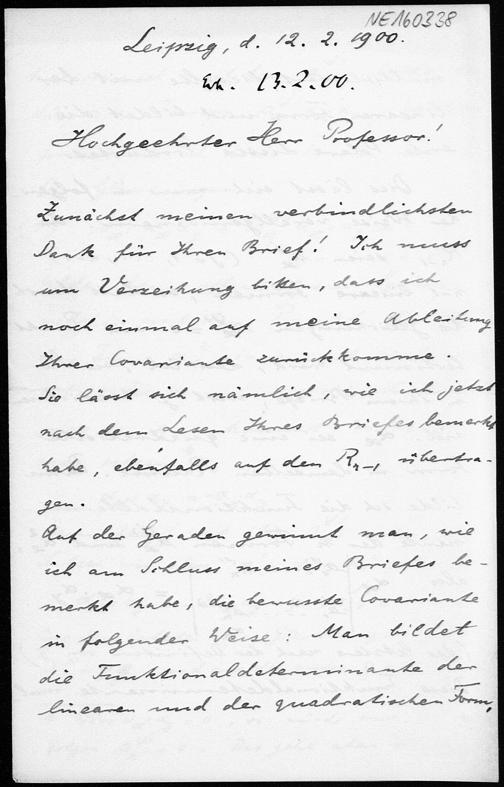 NE160338
Leipzig, d. 12. 2. 1900.
Erh. 13.2.00.
Hochgeehrter Herr Professor!
Zunächst meinen verbindlichsten
Dank für Ihren Brief! Ich muss
um Verzeihung bitten, dass ich
noch einmal auf meine Ableitung
Ihrer Covariante zurückkomme.
Sie lässt sich nämlich, wie ich jetzt
nach dem Lesen Ihres Briefes bemerkt
habe, ebenfalls auf den Rn-1 übertra-
gen.
Auf der Geraden gewinnt man, wie
ich am Schluss meines Briefes be-
merkt habe, die bewusste Covariante
in folgender Weise: Man bildet
die Funktionaldeterminante der
linearen und der quadratischen Form,